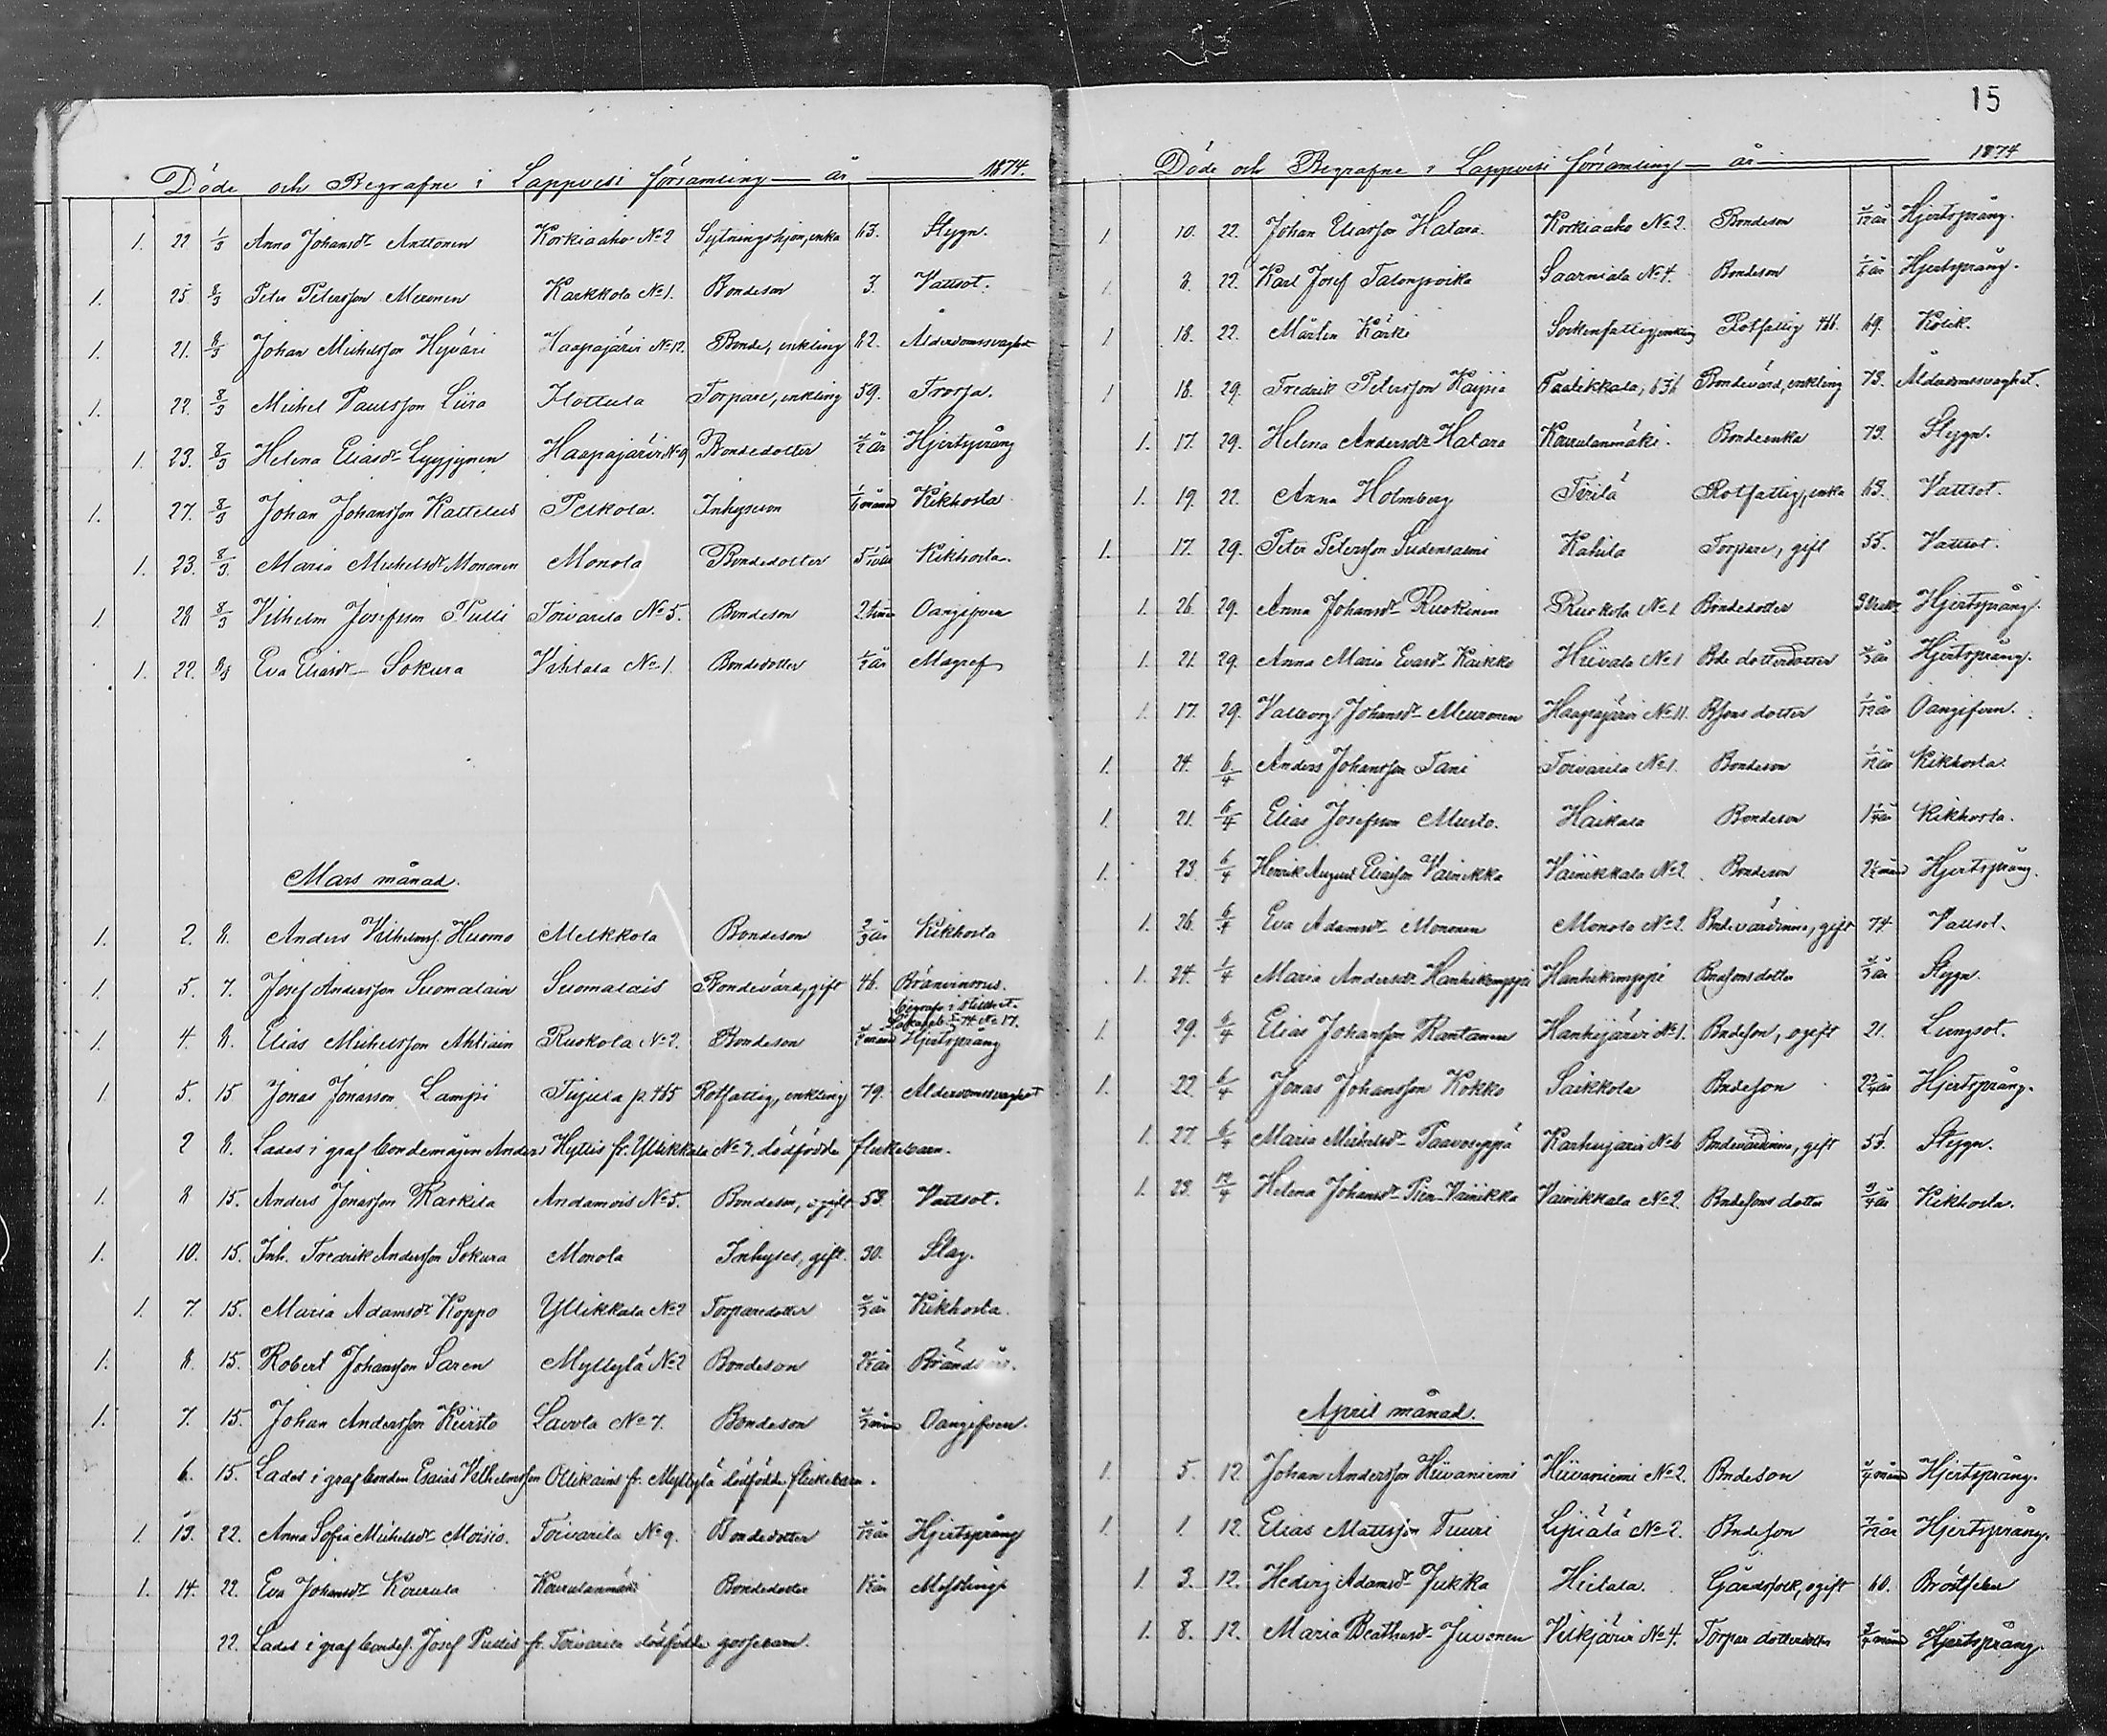 Döde och Begrafne i Lappvesi församling år 1874.
1. 22 1/3 Anna Johansdr Anttonen Korkiaaho No 2 Sytningshjon, enka 63. Stygn.
1. 25 8/3 Peter Petersson Meronen Karkkola No 1. Bondeson 3. Vattsot.
1. 21. 8/3 Johan Michelsson Hyväri Haapajärvi No 12. Bonde, enkling 62. Ålderdomssvaghet
1. 22. 8/3 Michel Paulsson Liira Ilottula Torpare, enkling 59. Frossa.
1. 23. 8/3 Helena Eliasdr Lyyjynen Haapajärvi No 9 Bondedotter 1/2 år Hjertsprång
1. 27. 8/3 Johan Johansson Kattelus Pelkola. Inhyseson månad Kikhosta
1. 23. 8/3. Maria Michelsdr Mononen Monola Bondedotter Kikhosta.
1 28 8/3 Vilhelm Josefsson Pulli Toivarila No 5. Bondeson Oangifven
1. 22. 8/3 Eva Eliasdr Sokura Vihtala No 1. Bondedotter år Magref
Mars månad.
1. 2. 8. Anders Vilhelmsf Huomo Melkkola Bondeson 2/3 år Kikhosta
1. 5. 7. Josef Andersson Suomalain Suomalais Bondevärd, gift 46. Bränvinsrus.
No 17.
1. 4. 8. Elias Michelsson Ahtiain Ruokola No 2. Bondeson månad Hjertsprång
1 5. 15 Jonas Jonasson Lampi Tujula p 465 Rotfattig, enkling 79. Ålderdomssvaghet
2 8. Lades i graf bondemågen Anders Hyttis fr. Yllikkala No 7. dödfödde flickebarn.
1. 8 15. Anders Jonasson Karkila Andamois No 5. Bondeson, ogift 53. Vattsot.
1. 10. 15. Inh. Fredrik Andersson Sokura Monola Inhyses, gift. 30. Slag.
1. 7. 15. Maria Adamsdr Koppo Yllikkala No 2 Torparedotter år Kikhosta.
1. 8. 15. Robert Johansson Saren Myllylä No 2 Bondeson år Brändsår.
1. 7. 15. Johan Andersson Kiiristo Lavola No 7. Bondeson månad Oangifven.
6. 15. Lades i graf bonden Esaias Vilhelmsson Ollikains fr. Myllylä dödfödde flickebarn.
1. 13. 22. Anna Sofia Michelsdr Moisio. Toivarila No 9. Bondedotter år Hjertsprång
1. 14. 22. Eva Johansdr Kourula Kourulanmäki Bondedotter år Messling
22. Lades i graf bondes. Josef Pullis fr. Toivarila dödfödde gossebarn.
15
Döde och Begrafne i Lappvesi församling år 1874
1 10. 22. Johan Eliasson Hatara. Korkiaaho No 2. Bondeson år Hjertsprång.
1. 8. 22. Karl Josef Talonpoika Saarniala No 4. Bondeson år Hjertsprång.
1 18. 22. Mårten Kärki Sockenfattig, enkling Rotfattig 466. 69. Kolik.
1 18. 29. Fredrik Petersson Kaipia Taalikkala, 636 Bondevärd, enkling 73. Ålderdomssvaghet.
1. 17. 29. Helena Andersdr Hatara Kourulanmäki. Bondeenka 73. Stygn.
1. 19. 22. Anna Holmberg Tirilä Rotfattig, enka 63. Vattsot.
1. 17. 29. Peter Petersson Sudensalmi Kahila Torpare, gift 55. Vattsot.
1. 26. 29. Anna Johansdr Ruokinen Ruokola No 1 Bondedotter Hjertsprång.
1. 21. 29. Anna Maria Evasdr Kaikko Hiivala No 1 Bde dotterdotter år Hjertsprång.
1. 17. 29. Valborg Johansdr Meuronen Haapajärvi No 11. Bsons dotter år Oangifven.
1. 24. 6/4 Anders Johansson Tani Toivarila No 1. Bondeson år Kikhosta.
1. 21. 6/4 Elias Josefsson Musto. Haikala Bondeson år Kikhosta.
1. 23. 6/4 Henrik August Eliasson Vainikka Vainikkala No 2. Bondeson månad Hjertsprång.
1. 26. 6/4 Eva Adamsdr Mononen Monola No 2. Bndevärdinna, gift 74 Vattsot.
1. 24. 1/4 Maria Andersdr Hanhikemppi Hanhikemppi Bndesons dotter år Stygn.
1. 29. 6/4 Elias Johansson Rantanen Hanhijärvi No 1. Bndeson, ogift 21. Lungsot.
1. 22. 6/4 Jonas Johansson Kokko Saikkola Bndeson år Hjertsprång.
1. 27. 6/4 Maria Michelsdr Paavoseppä Karhusjärvi No 6 Bndevärdinna, gift 53. Stygn.
1. 23. 12/4 Helena Johansdr Pien-Vainikka Vainikkala No 2. Bndesons dotter 3/4 år Kikhosta.
April månad.
1. 5. 12. Johan Andersson Hiivaniemi Hiivaniemi No 2. Bndeson månad Hjertsprång.
1. 1. 12. Elias Mattsson Tuuri Lipiälä No 2. Bndeson år Hjertsprång.
1. 3. 12. Hedvig Adamsdr Jukka Hietala. Gårdsfolk, ogift 60. Bröstfeber
1. 8. 12. Maria Beathasdr Juvonen Vilkjärvi No 4. Torpar dotterdotter månad Hjertsprång.